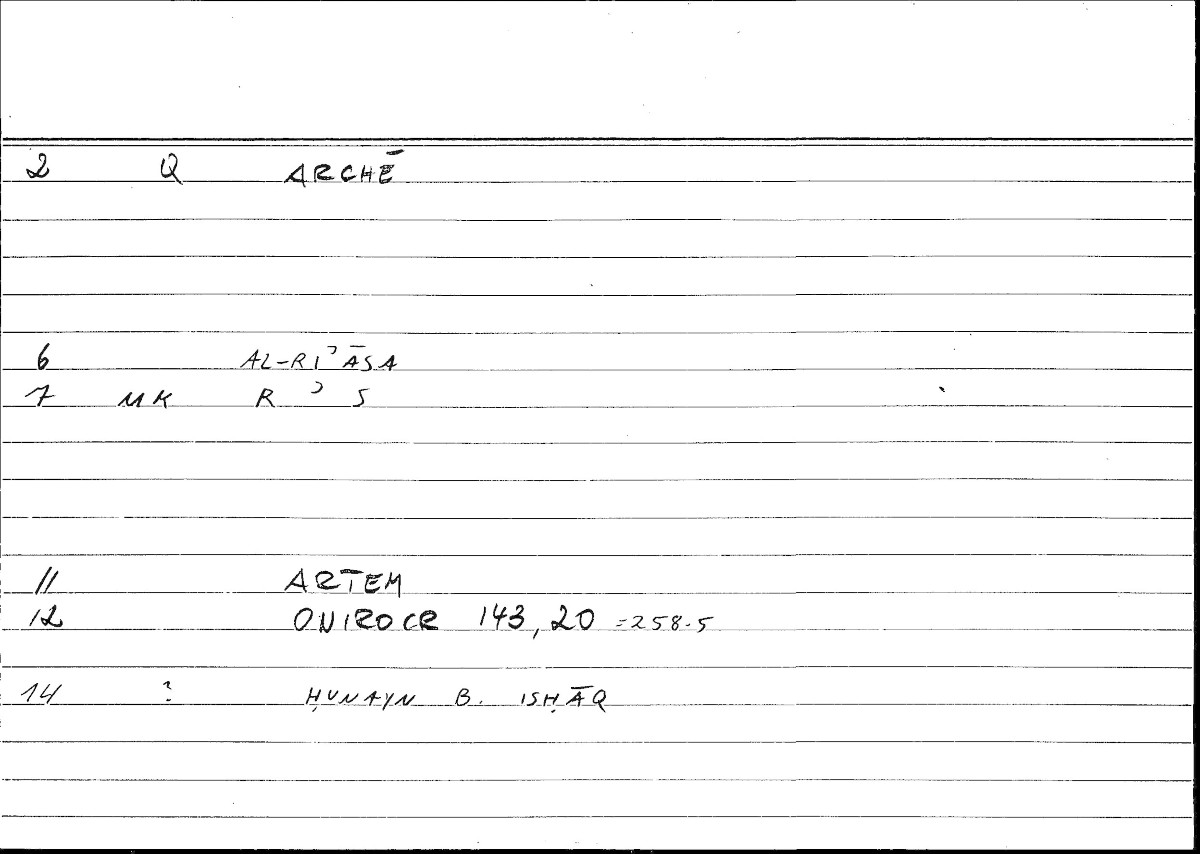 2 Q ARCHĒ
6 AL-RIʾĀSA
7 MK R ʾ S
11 ARTEM
12 ONIROCR 143,20 =258.5
14 ? ḤUNAYN B. ISḤĀQ